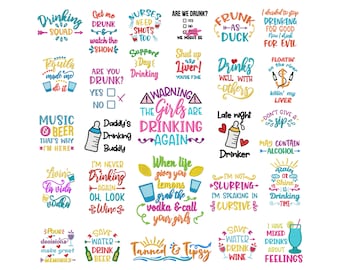 Drinking
SQUAD
Get me
DRUNK
watch the
SHOW
NURSES
NEED
SHOTS
TOO
ARE WE DRUNK?
YES
NO
WE MIGHT BE
DRUNK
AS
DUCK
I decided to stop
DRINKING
FOR GOOD
now I drink
FOR EVIL
Tequila
made me
do it
ARE YOU
DRUNK?
YES
NO
Support
Day
Drinking
Shut up
LIVER!
YOU'RE FINE
DRinks
WELL WITH
OTHERS
killin' my
LIVER
WARNING
THE
GIRLS
ARE
DRINKING
AGAIN
MUSIC
& BEER
THAT'S WHY
I'M HERE
Daddy's
Drinking
Buddy
Late night
Drinker
DON'T GIVE
A
SIP
MAY CONTAIN
ALCOHOL
Livin'
la vida
vodka
I'M NEVER
Drinking
AGAIN
OH, LOOK
Wine
When life
gives you
lemons
grab the
vodka & call
your girls
I'M NOT
SLURRING
I'M SPEAKING IN
CURSIVE
rain or
shine is
Drinking
TIME
#Poure
decisions
make great
MEMORIES
SAVE
WATER
DRINK
BEER
Tanned & Tipsy
SAVE
WATER
DRINK
WINE
I HAVE
MIXED
DRINKS
ABOUT
FEELINGS